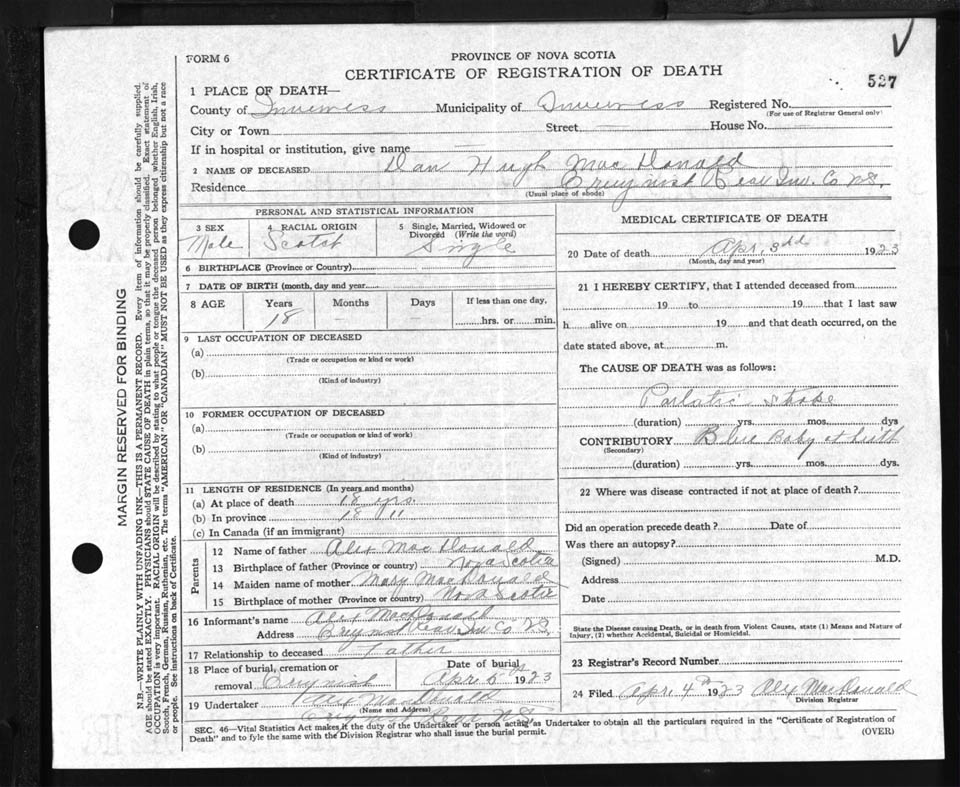 FORM 6
PROVINCE OF NOVA SCOTIA
CERTIFICATE OF REGISTRATION OF DEATH
527
1 PLACE OF DEATH—
County of Inverness Municipality of Inverness Registered No.
(For use of Registrar General only)
City or Town Street House No.
If in hospital or institution, give name
2 NAME OF DECEASED Dan Hugh MacDonald
Residence Creignish Rear Inv. Co N.S.
(Usual place of abode)
PERSONAL AND STATISTICAL INFORMATION
3 SEX
Male
4 RACIAL ORIGIN
Scotch
5 Single, Married, Widowed or
Divorced (Write the word)
Single
6 BIRTHPLACE (Province or Country)
7 DATE OF BIRTH (month, day and year
8 AGE Years Months Days If less than one day,
18 — — hrs. or min.
9 LAST OCCUPATION OF DECEASED
(a)
(Trade or occupation or kind or work)
(b)
(Kind of industry)
10 FORMER OCCUPATION OF DECEASED
(a)
(Trade or occupation or kind of work)
(b)
(Kind of industry)
11 LENGTH OF RESIDENCE (In years and months)
(a) At place of death 18 yrs.
(b) In province 18 "
(c) In Canada (if an immigrant)
Parents
12 Name of father Alex MacDonald
13 Birthplace of father (Province or country) Nova Scotia
14 Maiden name of mother Mary MacDonald
15 Birthplace of mother (Province or country) Nova Scotia
16 Informant's name Alex MacDonald
Address Creignish Rear Inv Co N.S.
17 Relationship to deceased Father
18 Place of burial, cremation or
removal Creignish
Date of burial
Apr 5th 1923
19 Undertaker MacDonald
(Name and Address)
Creignish Rear N.S.
MEDICAL CERTIFICATE OF DEATH
20 Date of death Apr. 3dd 1923
(Month, day and year)
21 I HEREBY CERTIFY, that I attended deceased from
19 to 19 that I last saw
h alive on 19 and that death occurred, on the
date stated above, at m.
The CAUSE OF DEATH was as follows:
Parlatic Stroke
(duration) yrs. mos. dys
CONTRIBUTORY Blue Baby at birth
(Secondary)
(duration) yrs. mos. dys.
22 Where was disease contracted if not at place of death?
Did an operation precede death? Date of
Was there an autopsy?
(Signed) M.D.
Address
Date
State the Disease causing Death, or in death from Violent Causes, state (1) Means and Nature of
Injury, (2) whether Accidental, Suicidal or Homicidal.
23 Registrar's Record Number
24 Filed Apr. 4th 1923 Alex MacDonald
Division Registrar
SEC. 46—Vital Statistics Act makes it the duty of the Undertaker or person acting as Undertaker to obtain all the particulars required in the "Certificate of Registration of
Death" and to fyle the same with the Division Registrar who shall issue the burial permit.
(OVER)
MARGIN RESERVED FOR BINDING
N.B.—WRITE PLAINLY WITH UNFADING INK—THIS IS A PERMANENT RECORD. Every item of information should be carefully supplied.
AGE should be stated EXACTLY. PHYSICIANS should STATE CAUSE OF DEATH in plain terms, so that it may be properly classified. Exact statement of
OCCUPATION is very important. RACIAL ORIGIN will be described by stating to what people or tongue the deceased person belonged whether English, Irish,
Scotch, French, German, Russian, Ruthenian, etc. The terms "AMERICAN" OR "CANADIAN" MUST NOT BE USED as they express citizenship but not a race
or people. See instructions on back of Certificate.